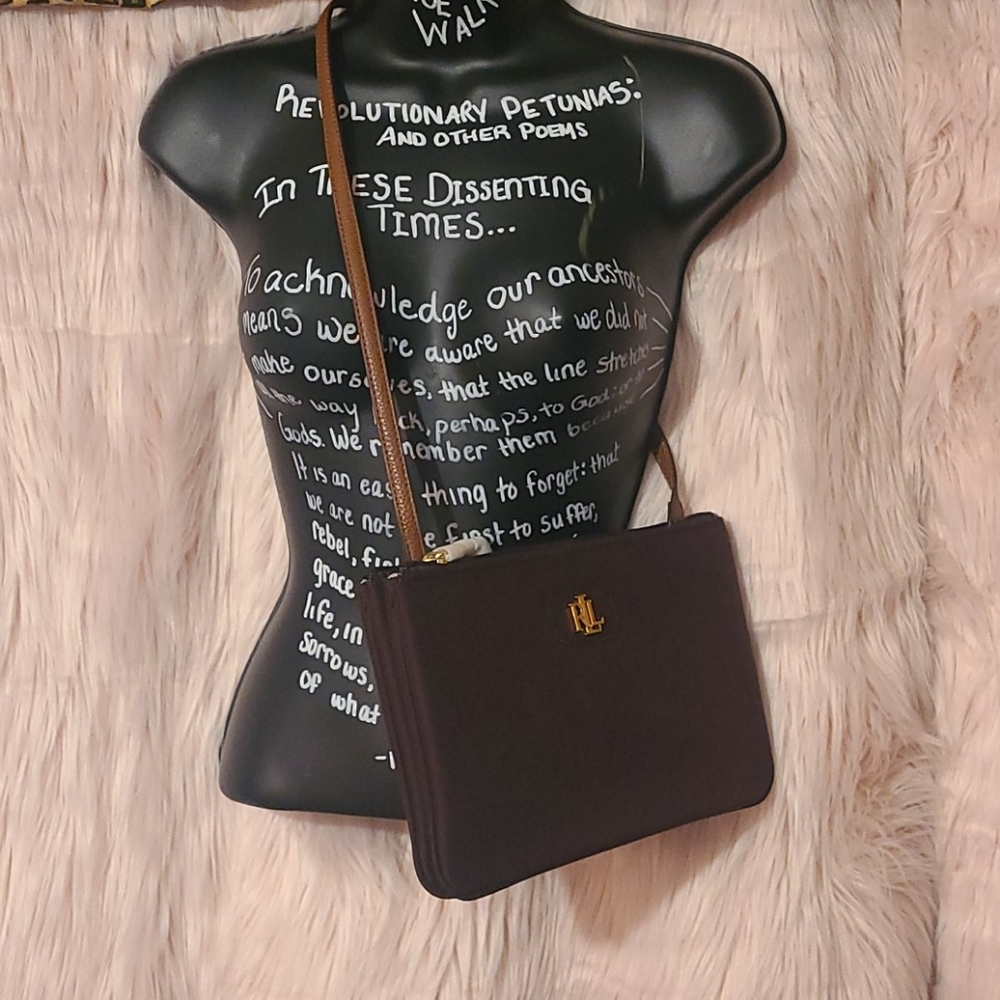 WALK
REVOLUTIONARY PETUNIAS:
AND OTHER POEMS
IN THESE DISSENTING
TIMES...
To acknowledge our ancestors
means we are aware that we did not
make ourselves, that the line stretches
all the way back, perhaps, to God; or to
Gods. We remember them because
It is an easy thing to forget: that
we are not the first to suffer,
rebel, fight
grace
life, in
sorrows,
of what
RLL